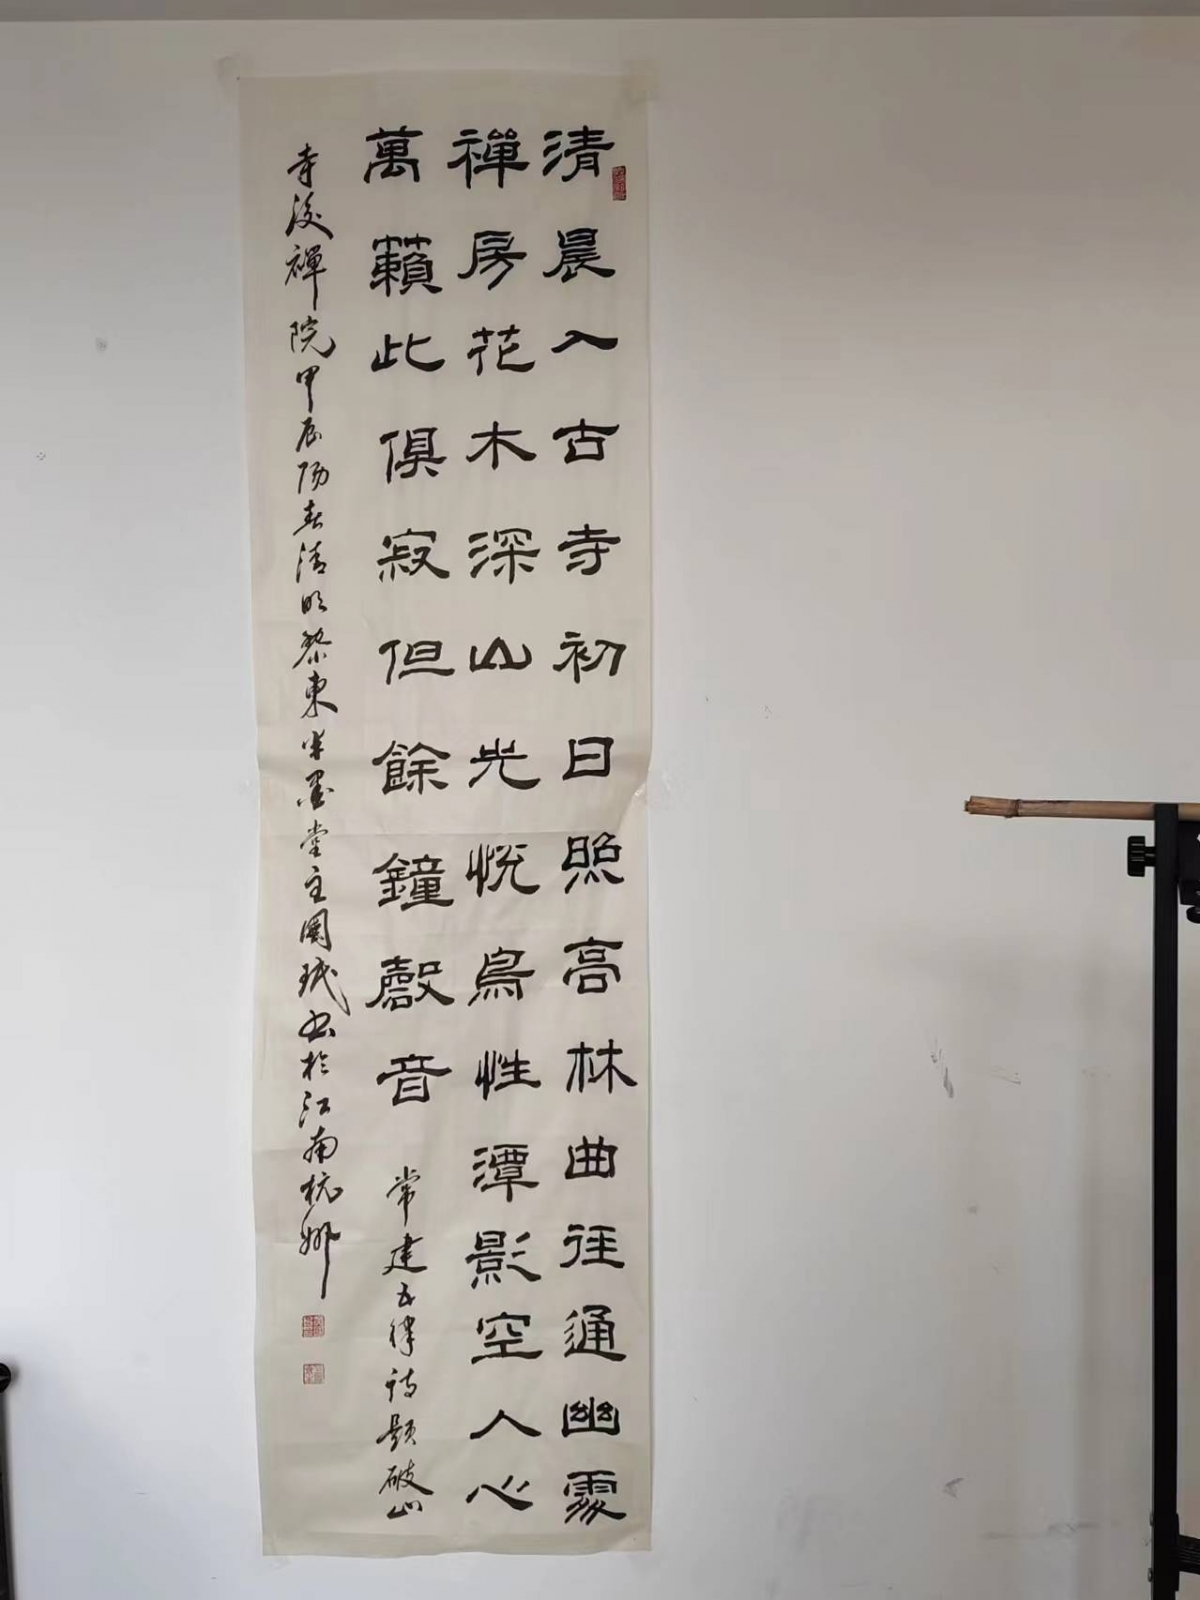 清晨入古寺初日照高林曲徑通幽處
禪房花木深山光悅鳥性潭影空人心
萬籟此俱寂但餘鐘磬音 常建五律詩題破山
寺後禪院甲辰陽春清明黎東半墨堂主國珉書於江南杭州